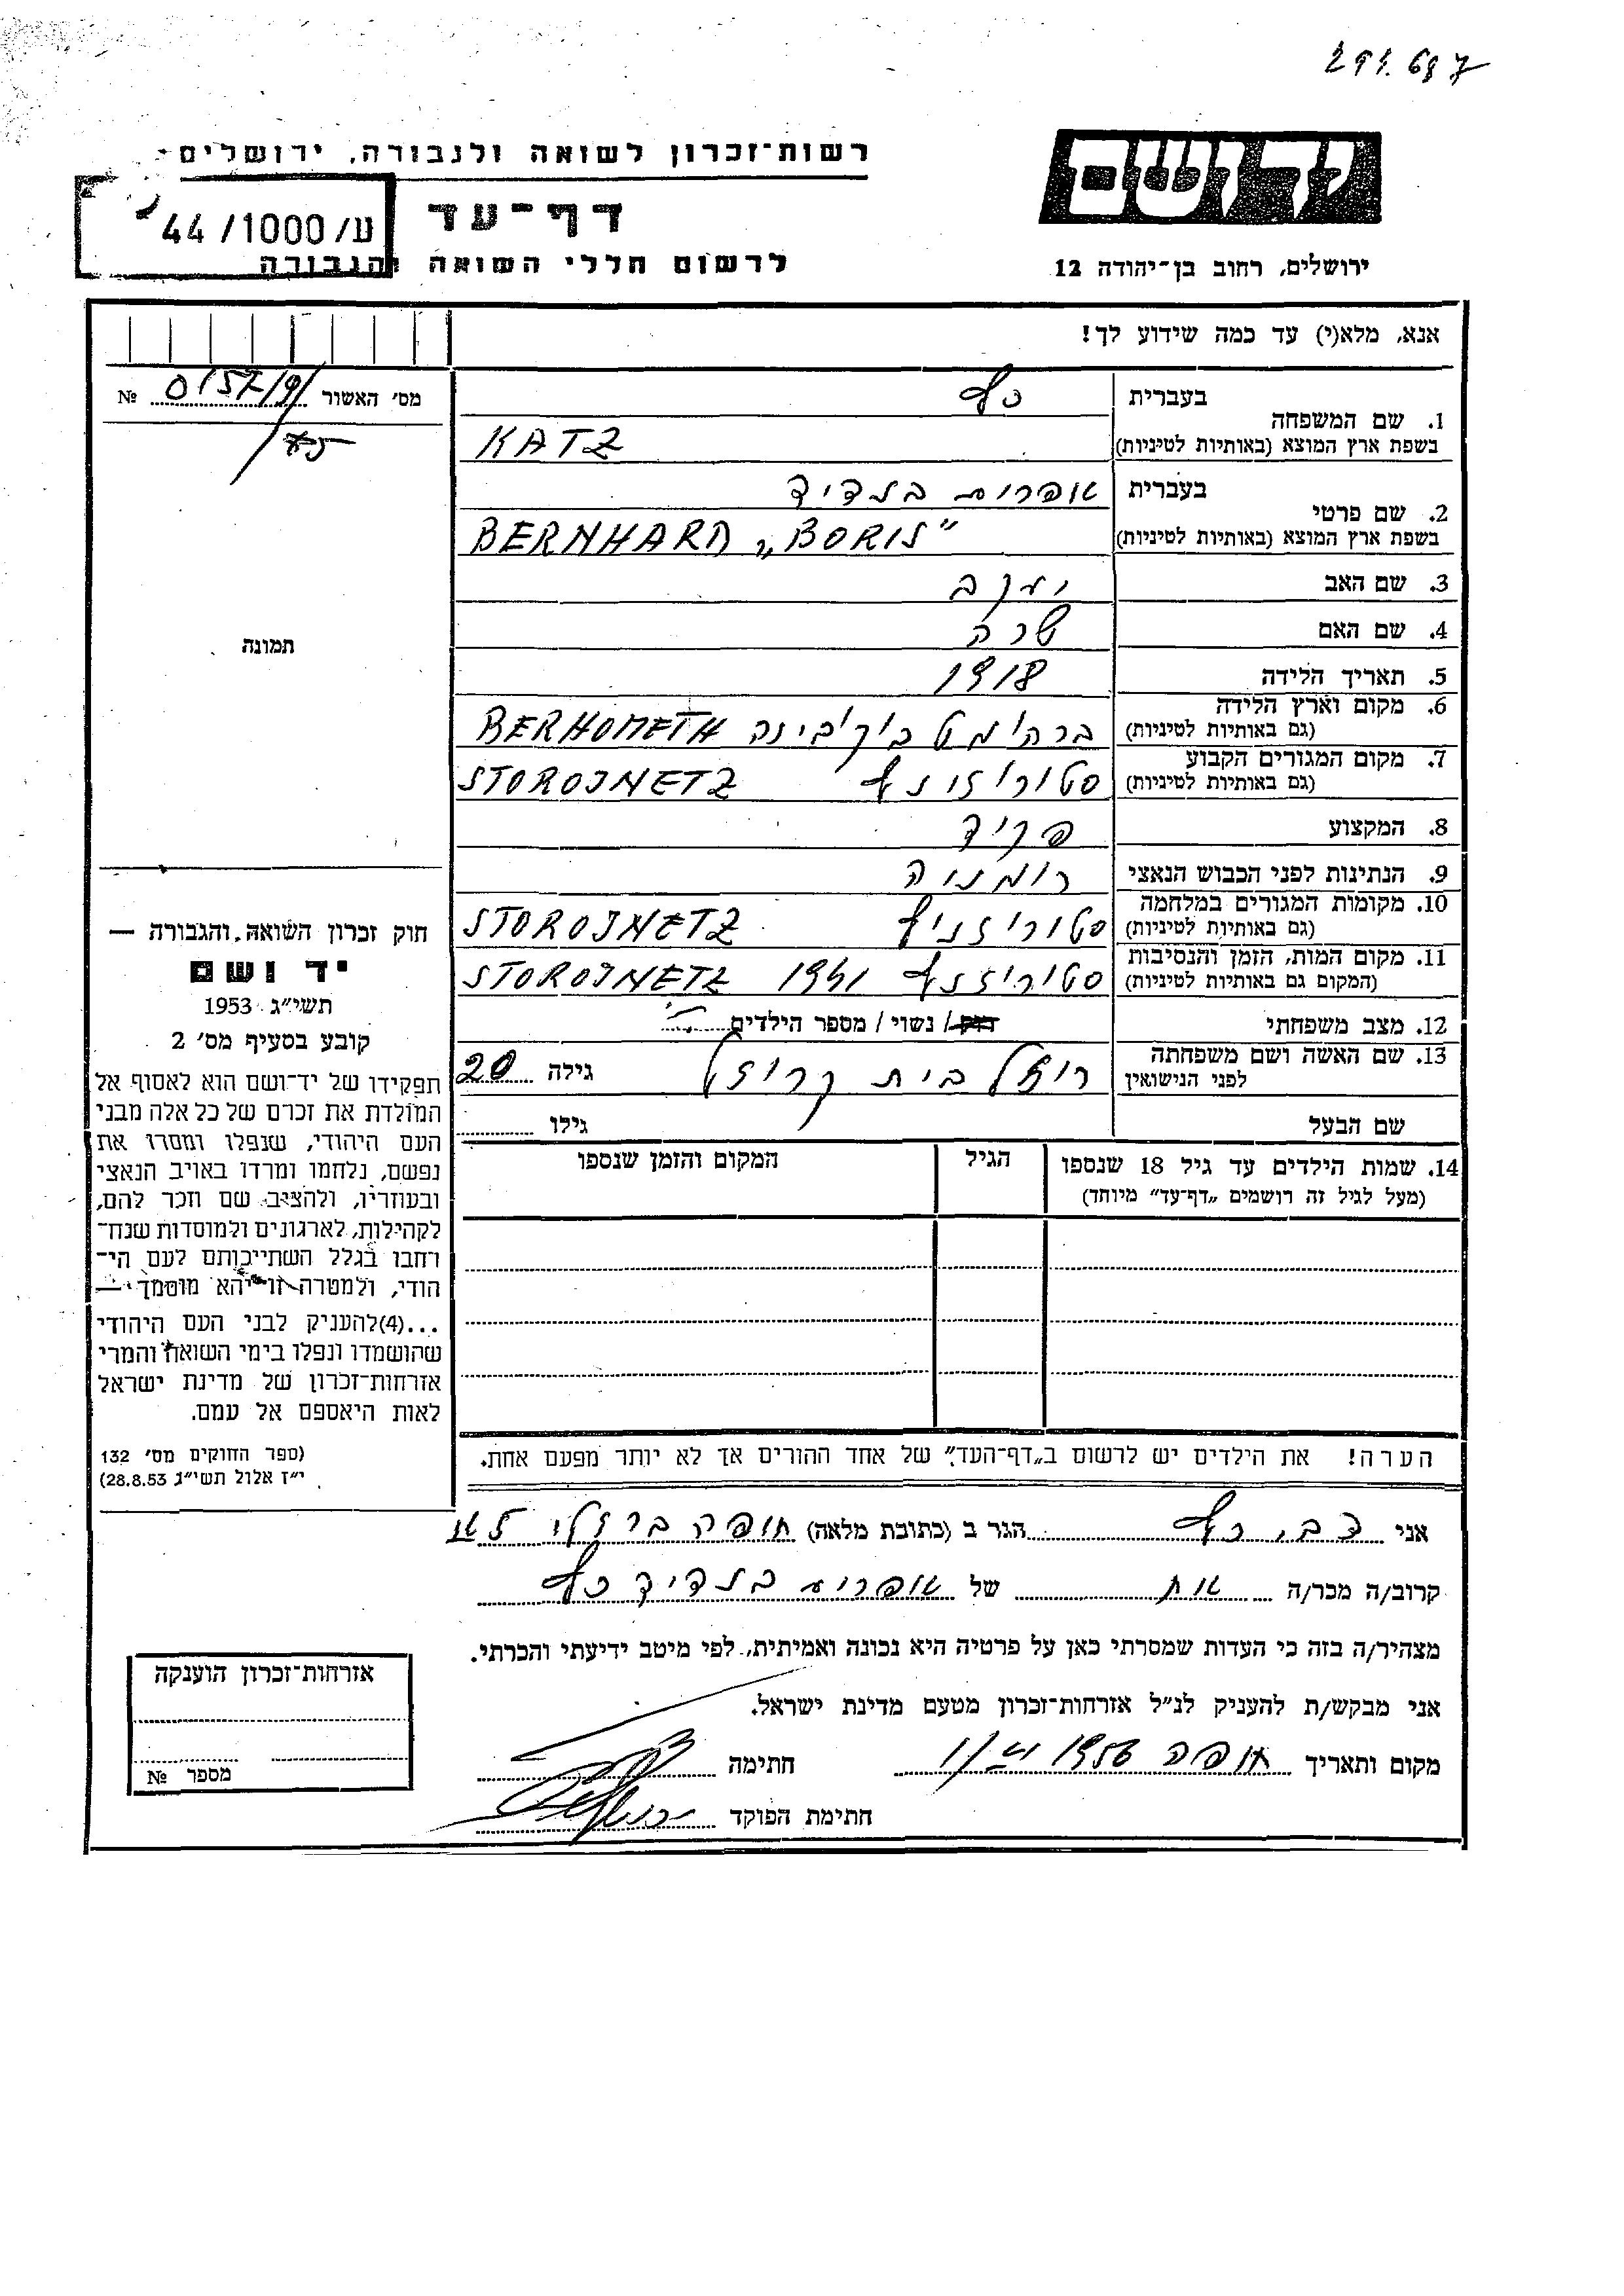 291.697
ידושם
רשות־זכרון לשואה ולגבורה, ירושלים
דף־עד
44/1000/ע
לרשום חללי השואה והגבורה
ירושלים, רחוב בן־יהודה 12
אנא, מלא(י) עד כמה שידוע לך!
מס׳ האשור № 0157/9/
בעברית כץ
1. שם המשפחה
בשפת ארץ המוצא (באותיות לטיניות) KATZ
בעברית אפרים
2. שם פרטי
בשפת ארץ המוצא (באותיות לטיניות) BERNHARD „BORIS”
3. שם האב יעקב
4. שם האם שרה
5. תאריך הלידה 1918
6. מקום וארץ הלידה
(גם באותיות לטיניות) ברהומט בוקובינה BERHOMETH
7. מקום המגורים הקבוע
(גם באותיות לטיניות) סטורוזינץ STOROJNETZ
8. המקצוע פקיד
9. הנתינות לפני הכבוש הנאצי רומניה
10. מקומות המגורים במלחמה
(גם באותיות לטיניות) סטורוזניץ STOROJNETZ
11. מקום המות, הזמן והנסיבות
(המקום גם באותיות לטיניות) סטורוזנץ 1941 STOROJNETZ
12. מצב משפחתי רווק / נשוי / מספר הילדים
13. שם האשה ושם משפחתה
לפני הנישואין רוזל בית גילה 20
שם הבעל גילו
14. שמות הילדים עד גיל 18 שנספו הגיל המקום והזמן שנספו
(מעל לגיל זה רושמים „דף־עד” מיוחד)
הערה! את הילדים יש לרשום ב„דף־העד” של אחד ההורים אך לא יותר מפעם אחת.
תמונה
חוק זכרון השואה והגבורה —
יד ושם
תשי״ג 1953
קובע בסעיף מס׳ 2
תפקידו של יד־ושם הוא לאסוף אל
המולדת את זכרם של כל אלה מבני
העם היהודי, שנפלו ומסרו את
נפשם, נלחמו ומרדו באויב הנאצי
ובעוזריו, ולהציב שם וזכר להם,
לקהילות, לארגונים ולמוסדות שנח־
רחבו בגלל השתייכותם לעם הי־
הודי, ולמטרה זו יהא מוסמך —
...(4)להעניק לבני העם היהודי
שהושמדו ונפלו בימי השואה והמרי
אזרחות־זכרון של מדינת ישראל
לאות היאספם אל עמם.
(ספר החוקים מס׳ 132
י״ז אלול תשי״ג 28.8.53)
אני צבי כץ הגר ב (כתובת מלאה) חיפה ברזלי
קרוב/ה מכר/ה אח של אפרים כץ
מצהיר/ה בזה כי העדות שמסרתי כאן על פרטיה היא נכונה ואמיתית, לפי מיטב ידיעתי והכרתי.
אני מבקש/ת להעניק לנ״ל אזרחות־זכרון מטעם מדינת ישראל.
מקום ותאריך חיפה 1956 חתימה
חתימת הפוקד
אזרחות־זכרון הוענקה
מספר №